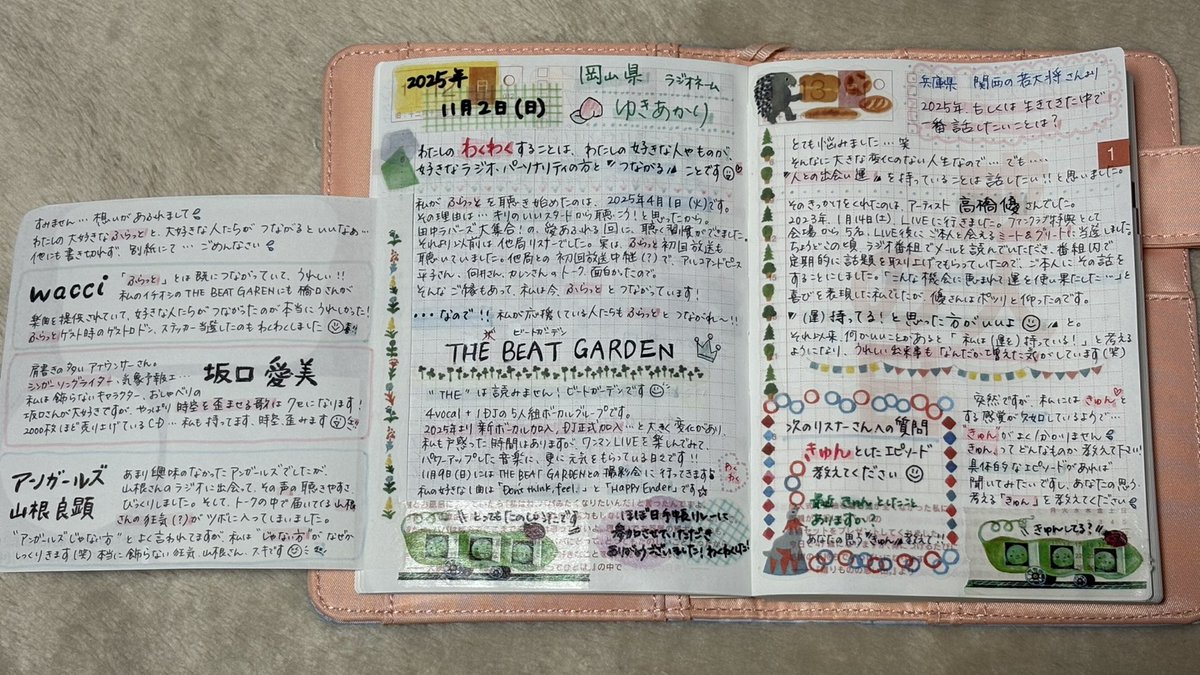 すみません… 想いがあふれまして
わたしの大好きなふらっとと、大好きな人たちが つながるといいなぁ…
他にも書き切れず、別紙にて… ごめんなさい
wacci
「ふらっと」とは既につながっていて、うれしい!!
私のイチオシのTHE BEAT GARDENにも 橋口さんが
楽曲を提供されていて、好きな人たちがつながったのが本当にうれしかった!
ふらっとゲスト時のゲストロドン、ステッカー当選したのもわくわくしました
肩書きの多いアナウンサーさん。
シンガーソングライター、気象予報士…
坂口 愛美
私は飾らないキャラクター、おしゃべりの
坂口さんが大好きですが、やっぱり 時空を歪ませる歌は クセになります!
2000枚ほど売り上げているCD… 私も持ってます、時空、歪みます
アンガールズ
山根 良顕
あまり興味のなかったアンガールズでしたが、
山根さんのラジオに出会って、その声の聴きやすさに
びっくりしました。そして、トークの中で届いてくる山根
さんの狂気(?)が ツボに入ってしまいました。
"アンガールズじゃない方"とよく言われてますが、私は"じゃない方"が なぜか
しっくりきます(笑) 本当に飾らない狂気、山根さん、スキです
2025年
11月2日(日)
岡山県 ラジオネーム
ゆきあかり
わたしの わくわくすることは、わたしの好きな人やものが、
好きなラジオ、パーソナリティの方と "つながる" ことです
私が ふらっと を聴き始めたのは、2025年4月1日(火)です。
その理由は… キリのいいスタートから聴こう!と思ったから。
田中ラバーズ大集合!の、愛あふれる回に、聴く習慣ができました。
それより以前は他局リスナーでした。実は、ふらっと初回放送も
聴いていました。他局との 初回放送中継(?)で、アルコアンドピース
平子さん、向井さん、カレンさんのトーク、面白かったので。
そんなご縁もあって、私は今、ふらっと とつながっています!
・・・なので!! 私が応援している人たちも ふらっと とつながれ〜!!
ビートガーデン
THE BEAT GARDEN
"THE"は読みません! ビートガーデンです
4vocal + 1DJの5人組ボーカルグループです。
2025年より新ボーカル加入、DJ正式加入… と 大きく変化があり、
私も戸惑った時間はありますが、ワンマンLIVEを楽しんでみて、
パワーアップした音楽に、更に元気をもらっている日々です
11月9日(日)にはTHE BEAT GARDENとの撮影会に行ってきます!
私の好きな1曲は「Don't think, feel.」と「Happy Ender」です☆
わくわく
とってもたのしみです
ほぼ日手帳リレーに
参加させていただき
ありがとうございました! わくわくした!
兵庫県 関西の若大将さんより
2025年、もしくは 生きてきた中で
一番話したいことは?
とても悩みました… 笑
そんなに大きな変化のない人生なので… でも…
"人との出会い運"を持っていることは話したい!!と思いました。
そのきっかけをくれたのは、アーティスト 高橋優さんでした。
2023年、1月14日(土)、LIVEに行きました。ファンクラブ特典として
会場から5名、LIVE後にご本人と会えるミート&グリートに当選しました。
ちょうどこの頃、ラジオ番組でメールを読んでいただき、番組内で
定期的に話題を取り上げてもらっていたので、ご本人にその話を
することにしました。「こんな機会に恵まれて運を使い果たした…」と
喜びを表現した私でしたが、優さんはポツリと仰ったのです。
"(運)持ってる!と思った方がいいよ"と。
それ以来、何かいいことがあると「私は(運)も持っている!」と考える
ようになり、うれしい出来事も なんだか増えた気がしています(笑)
次のリスナーさんへの質問
きゅんとしたエピソード
教えてください
最近 きゅんとしたこと
ありますか?
あなたの思う"きゅん"教えて!!
突然ですが、私には きゅんと
する感覚がヌケているようで…
"きゅん"がよく分かりません
きゅん、って どんなものか、教えて下さい!
具体的なエピソードがあれば
聞いてみたいですし、あなたの思う、
考える「きゅん」を教えてください
きゅんしてる?!
1
13